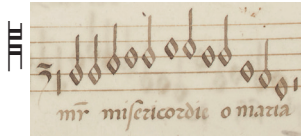 mr̄ misericordie o maria